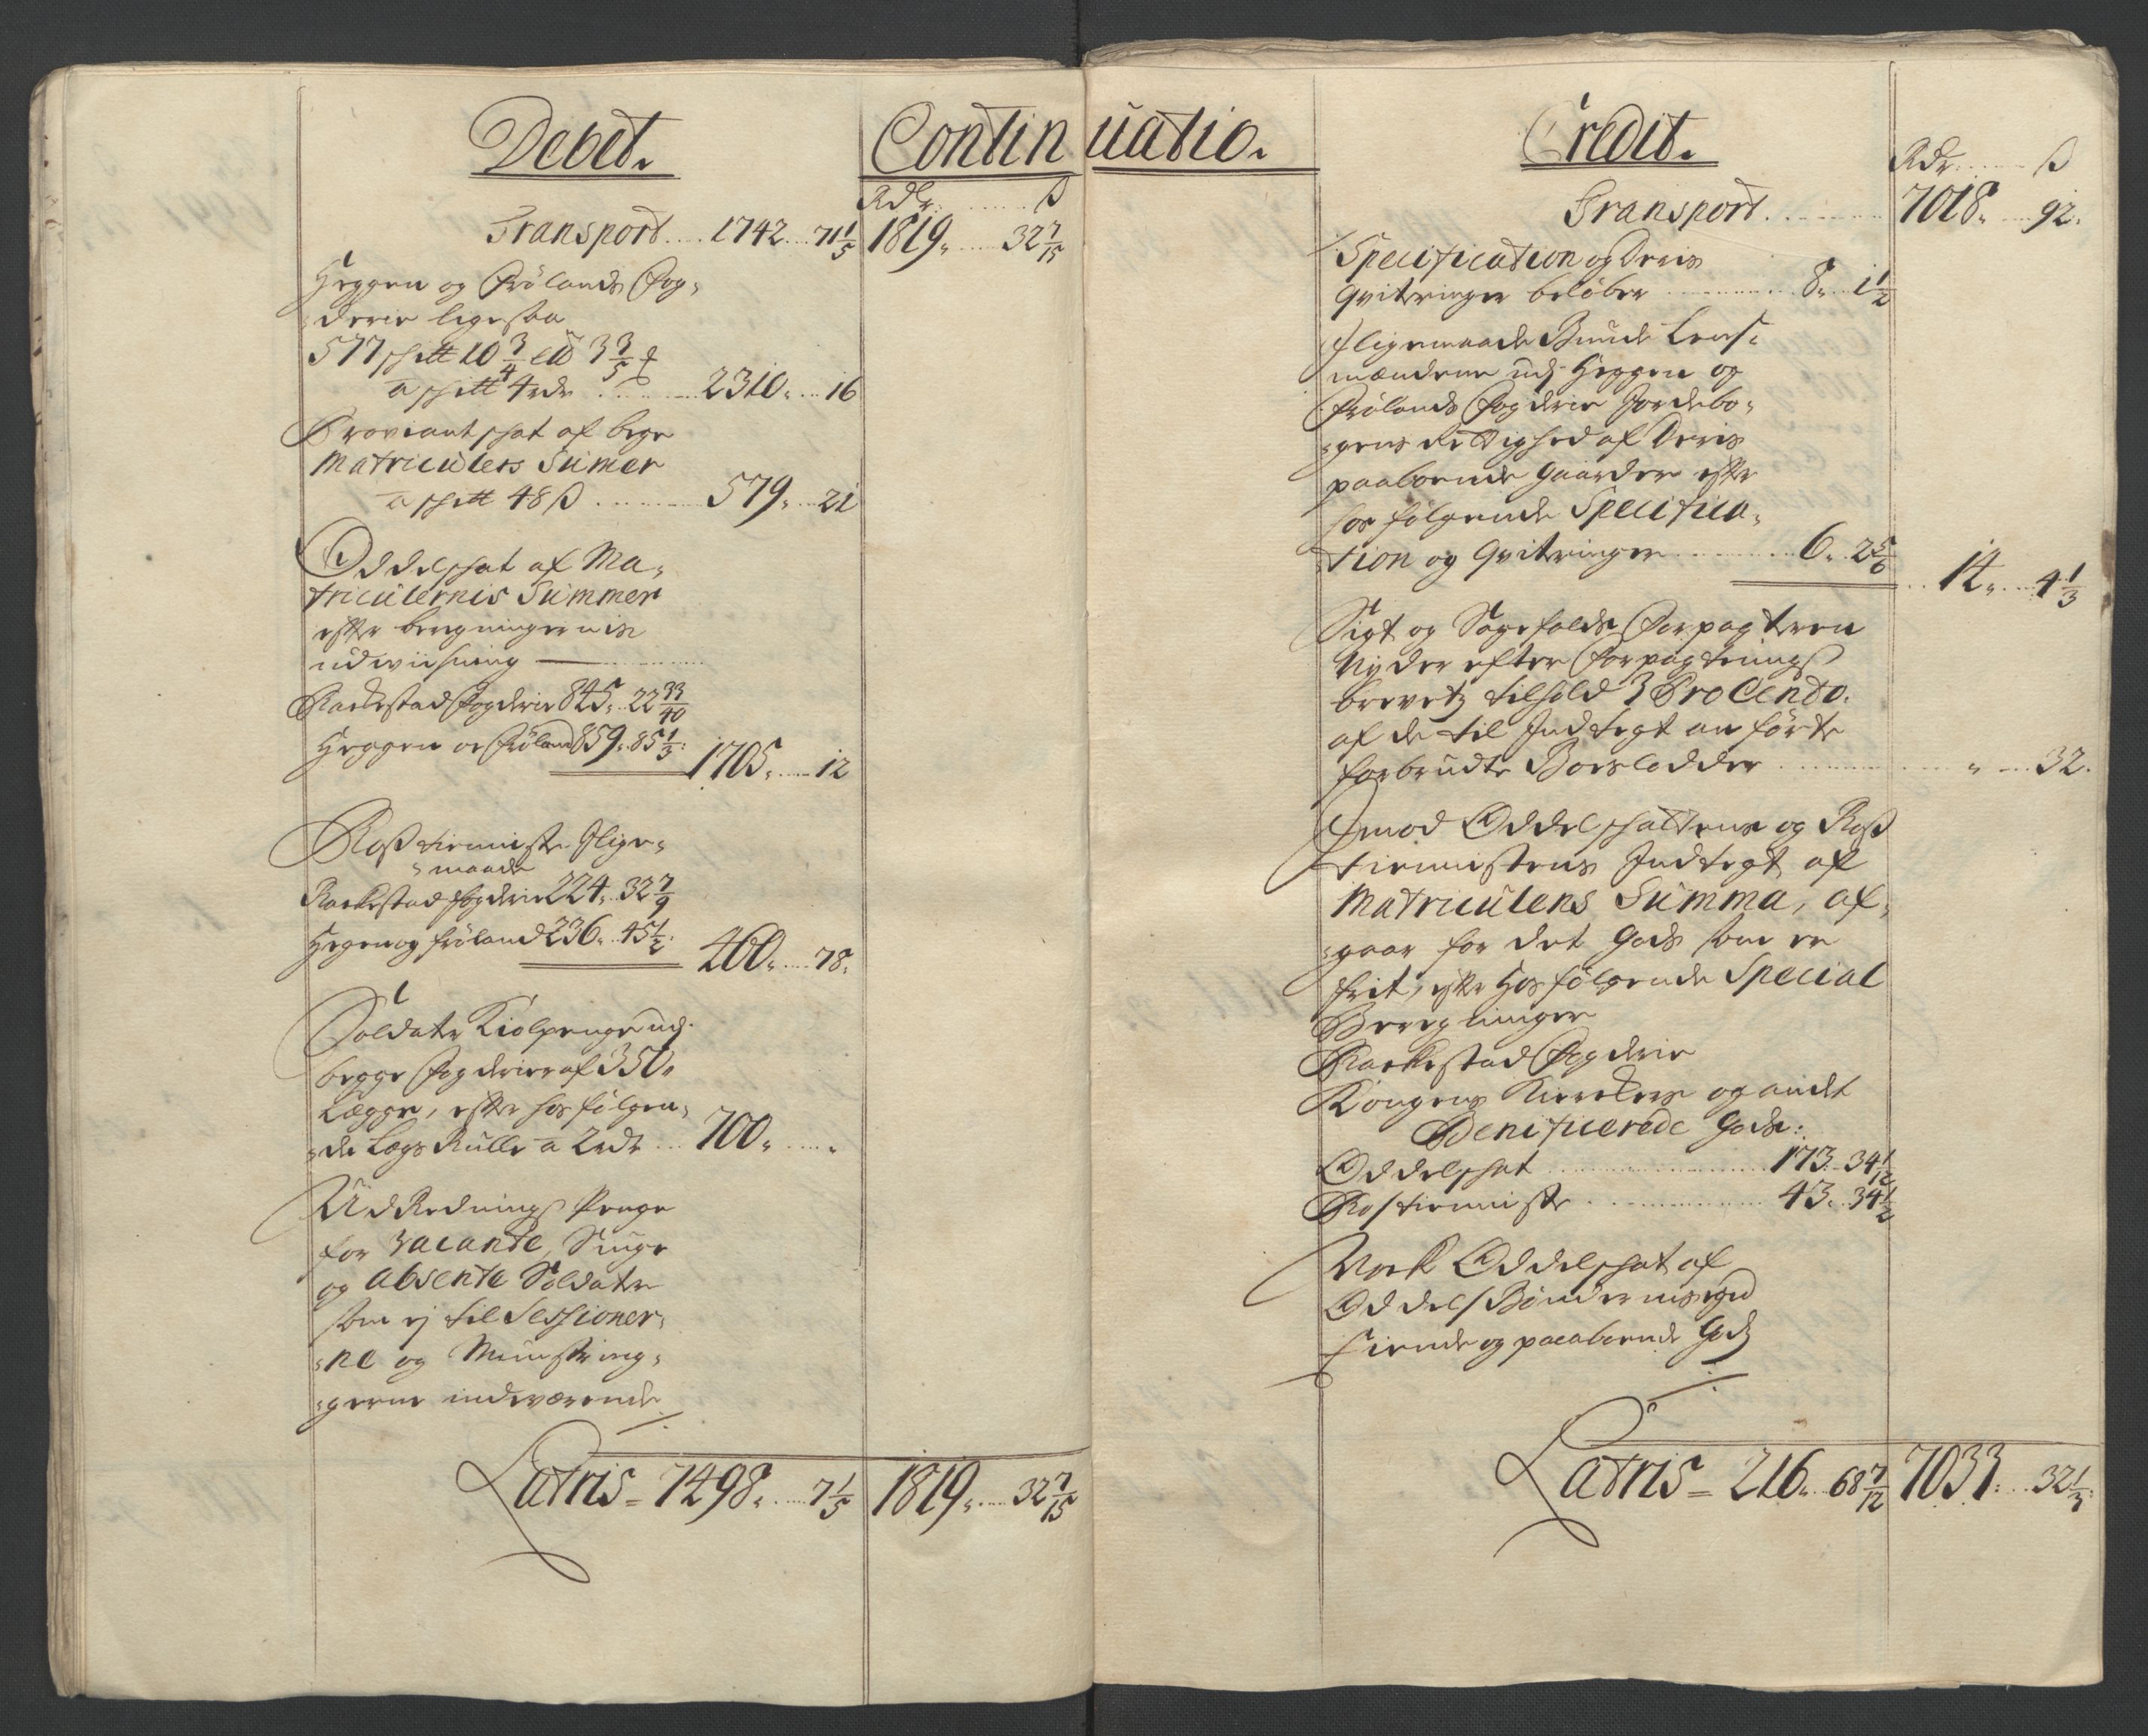 Debet. Continuatio.
Rdr. ß
Transport 1742. 71 1/5 1819. 32 7/15
Heggen og Frølands Fog-
derie ligesaa
577 schltt 10 3/4
a schltt 4 rdr 2310. 16
Proviantschat af bege
Matriculers Sumer
a schltt 48 ß 579. 21
Oddelschat af Ma-
triculernis Summer
efter beregningernis
udwiisning
Rackestad Fogderie 845. 22 33/40
Heggen oc Frøland 859. 85 1/3 1705. 12
Roß tienniste Ilige-
maade
Rackestad Fogderie 224. 32 7/9
Hegen og Frøland 236. 45 1/2 460. 78.
Soldater Kiolpenge udj
begge Fogderier af 350
Lægge, efter hos følgen-
de Lægs Rulle a 2 rdr 700.
Udrednings Penge
for vacante, Siuge
og absente Soldater
som ej til Sessioner-
ne og Mynstring-
gerne indværende
Latris = 7498. 7 1/5 1819. 32 7/15
Credit.
Rdr ß
Transport 7018. 92.
Specification og Deris
Qvitringer beløber 8. 1 1/2
Iligemaade Bunde Lens-
mændene udj Heggen og
Frølands Fogderie Jordebo-
gens Rettighed af Deris
paaboende Gaarder efter
hos følgende Specifica-
tion og Qvitringer 6. 2 5/6 14. 4 1/3
Sigt og Sagefalds Forpagteren
Nyder efter Forpagtnings
brevetz tilhold 3 Pro Cento.
af de til Indtegt anførte
forbrudte Boeslodder 32.
Imod Oddelschattens og Roß
tiennistens Indtegt af
Matriculens Summa, af-
gaar for det Gods som er
frit, efter Hosfølgende Special
Beregninger
Rackestad Fogderie
Kongens Kierckers og andet
Benificerede Gods:
Oddelschat 173. 34 1/12
Rostienniste 43. 34 1/2
Nock Oddelschat af
Oddels Bøndernis eget
eiende og paaboende Gods
Latris = 216. 68 7/12 7033. 32 1/3